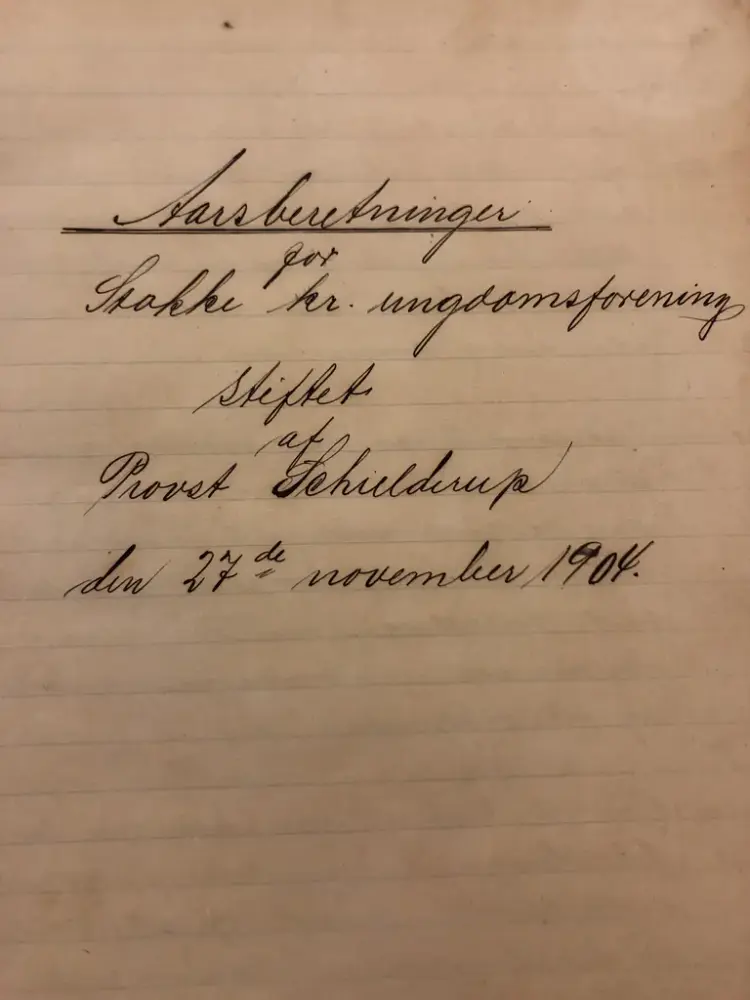 Aarsberetninger
for
Stokke kr. ungdomsforening
stiftet
af
Provst Schielderup
den 27de november 1904.